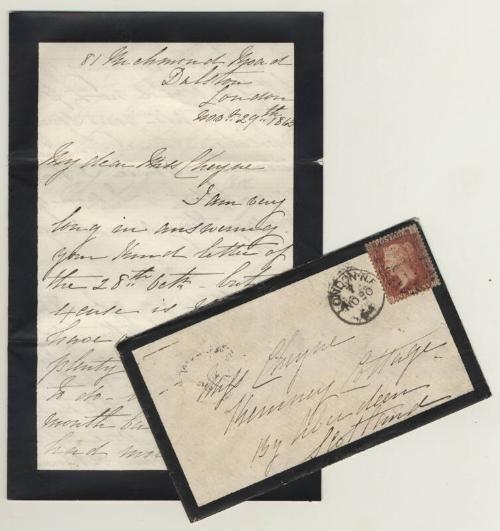 81 Richmond Road
Dalston
London
Nov. 29th 186
My dear Miss Cheyne
I am very
long in answering
your kind letter of
the 28th Octr. but
is
have
plenty
to do
month
had
LONDON·N.E
NO 30
Miss Cheyne
Cottage
By Aberdeen
Scotland